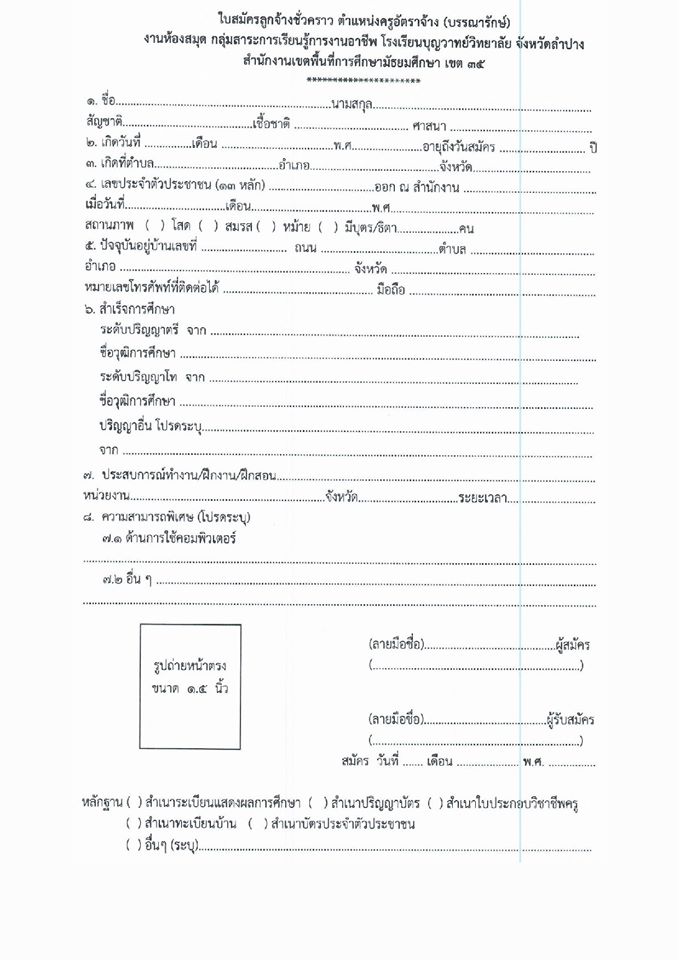 ใบสมัครลูกจ้างชั่วคราว ตำแหน่งครูอัตราจ้าง (บรรณารักษ์)
งานห้องสมุด กลุ่มสาระการเรียนรู้การงานอาชีพ โรงเรียนบุญวาทย์วิทยาลัย จังหวัดลำปาง
สำนักงานเขตพื้นที่การศึกษามัธยมศึกษา เขต ๓๕
**********************
๑. ชื่อ..........................................................นามสกุล..........................................................
สัญชาติ...................................เชื้อชาติ ............................... ศาสนา ......................................
๒. เกิดวันที่ .............เดือน ...............................พ.ศ........................อายุถึงวันสมัคร ....................... ปี
๓. เกิดที่ตำบล..................................อำเภอ...........................................จังหวัด................................
๔. เลขประจำตัวประชาชน (๑๓ หลัก) ............................ออก ณ สำนักงาน ...................................
เมื่อวันที่...........................เดือน................................พ.ศ......................................................
สถานภาพ ( ) โสด ( ) สมรส ( ) หม้าย ( ) มีบุตร/ธิดา.................คน
๕. ปัจจุบันอยู่บ้านเลขที่ ....................... ถนน ................................ตำบล .................................
อำเภอ .............................................................. จังหวัด .......................................................
หมายเลขโทรศัพท์ที่ติดต่อได้ ......................................... มือถือ ..................................................
๖. สำเร็จการศึกษา
ระดับปริญญาตรี จาก ....................................................................................................
ชื่อวุฒิการศึกษา ................................................................................................................
ระดับปริญญาโท จาก ....................................................................................................
ชื่อวุฒิการศึกษา ................................................................................................................
ปริญญาอื่น โปรดระบุ..........................................................................................................
จาก ...............................................................................................................................
๗. ประสบการณ์ทำงาน/ฝึกงาน/ฝึกสอน......................................................................................
หน่วยงาน.....................................................จังหวัด...........................ระยะเวลา........................
๘. ความสามารถพิเศษ (โปรดระบุ)
๗.๑ ด้านการใช้คอมพิวเตอร์
..........................................................................................................................................
๗.๒ อื่น ๆ ......................................................................................................................
..........................................................................................................................................
รูปถ่ายหน้าตรง
ขนาด ๑.๕ นิ้ว
(ลายมือชื่อ)....................................ผู้สมัคร
(.........................................................)
(ลายมือชื่อ)..................................ผู้รับสมัคร
(.........................................................)
สมัคร วันที่ ...... เดือน ................. พ.ศ. .............
หลักฐาน ( ) สำเนาระเบียนแสดงผลการศึกษา ( ) สำเนาปริญญาบัตร ( ) สำเนาใบประกอบวิชาชีพครู
( ) สำเนาทะเบียนบ้าน ( ) สำเนาบัตรประจำตัวประชาชน
( ) อื่นๆ (ระบุ)..........................................................................................................